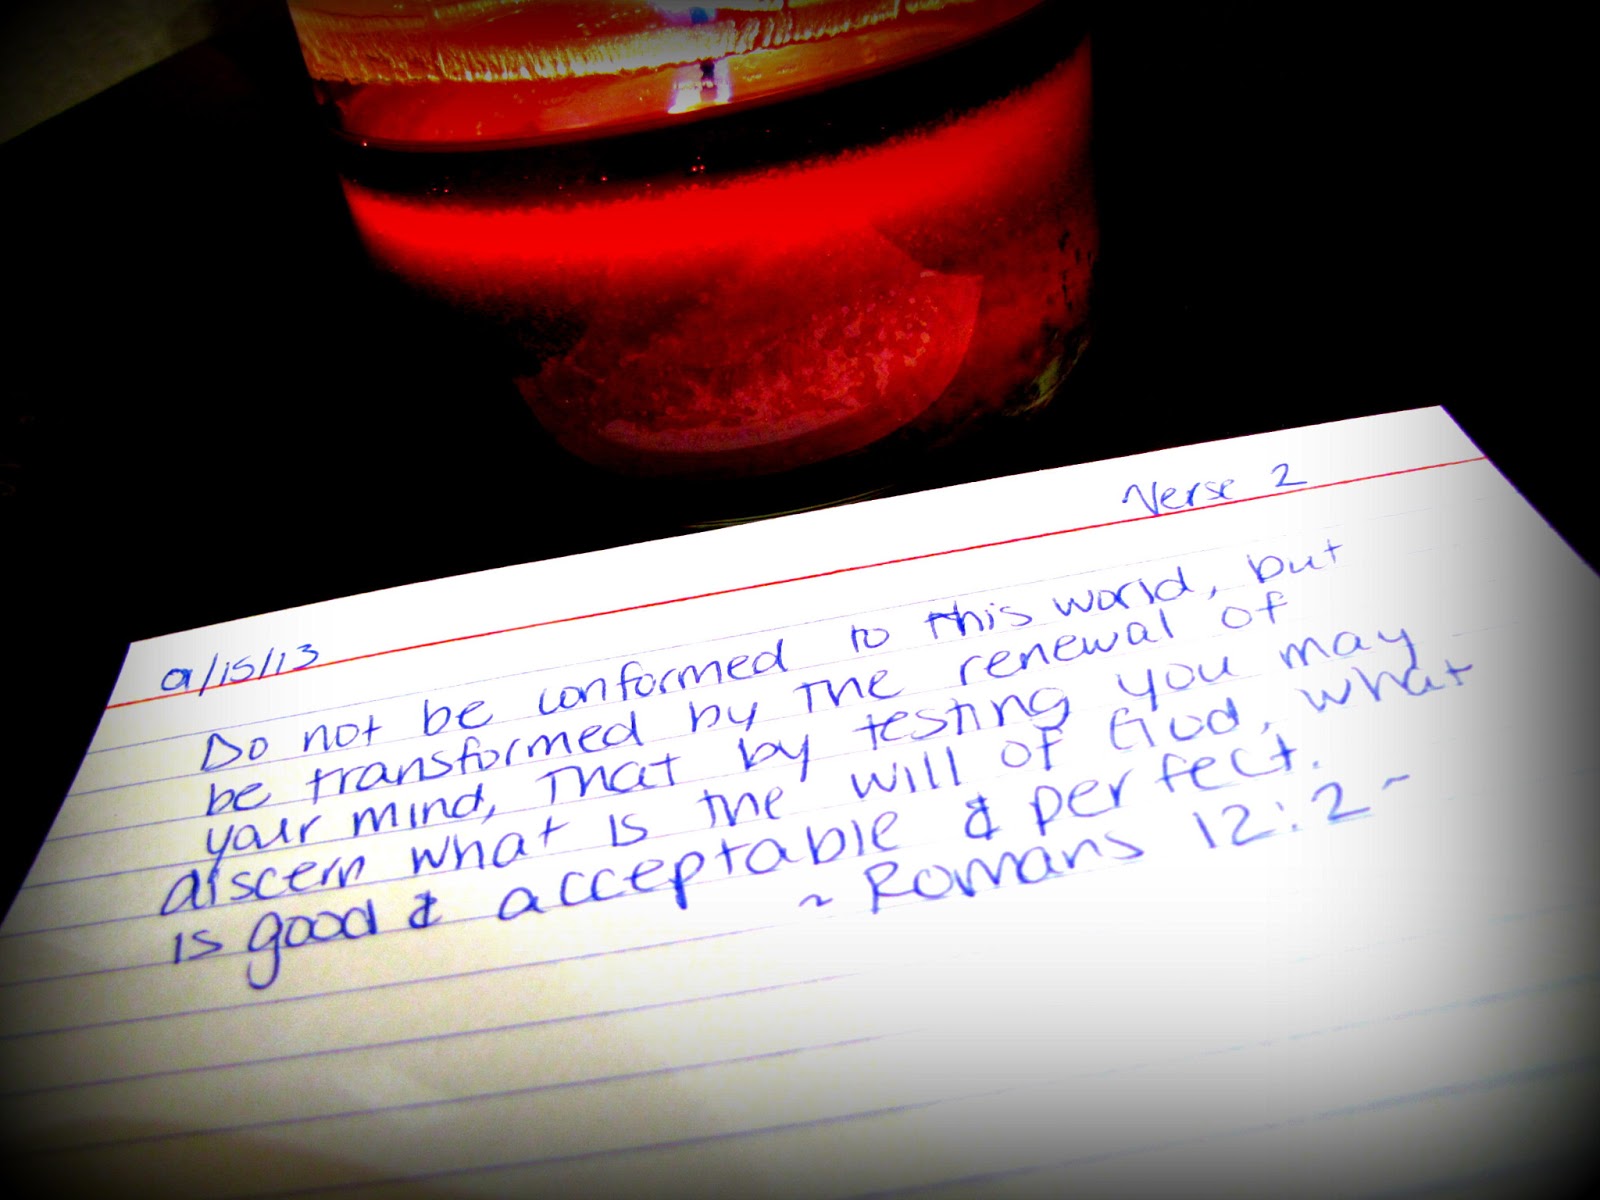 Verse 2
9/15/13
Do not be conformed to this world, but
be transformed by the renewal of
your mind, that by testing you may
discern what is the will of God, what
is good & acceptable & perfect.
~ Romans 12:2~